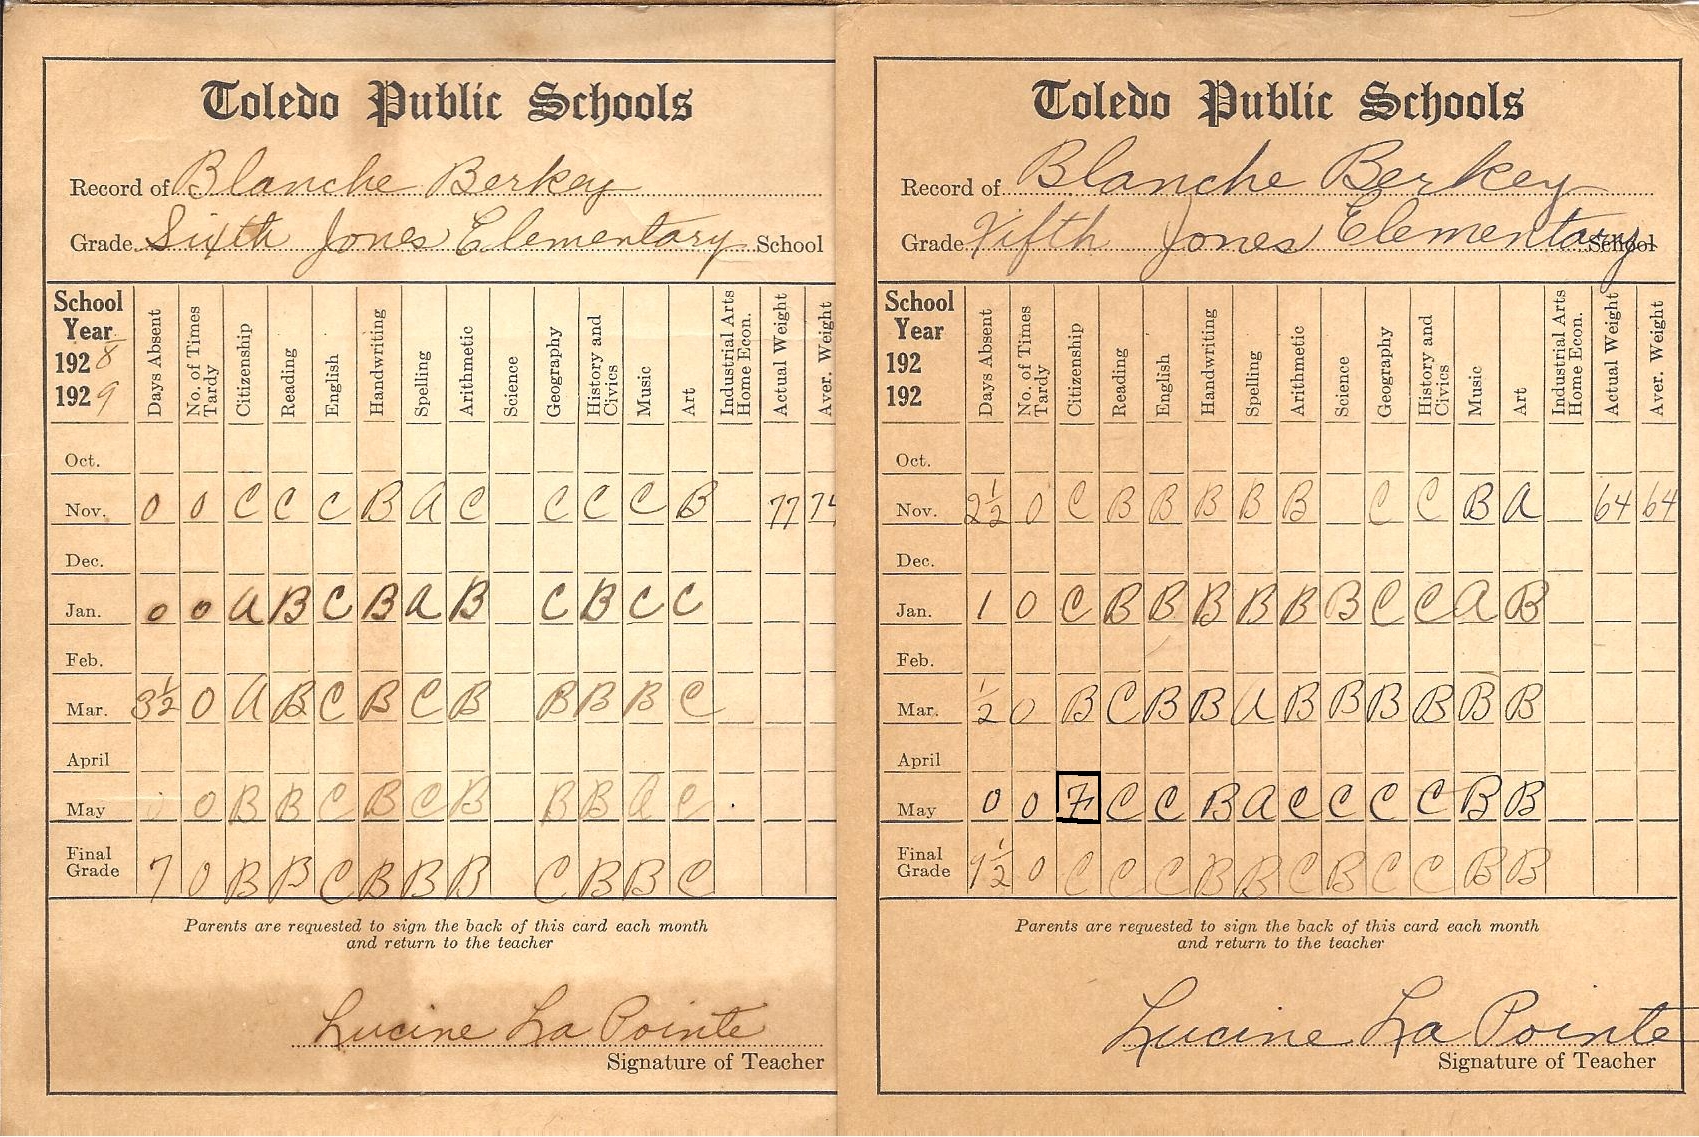 Toledo Public Schools
Record of Blanche Berkey
Grade Sixth Jones Elementary School
School Year 1928 1929 Days Absent No. of Times Tardy Citizenship Reading English Handwriting Spelling Arithmetic Science Geography History and Civics Music Art Industrial Arts Home Econ. Actual Weight Aver. Weight
Oct.
Nov. 0 0 C C C B A C C C C B 77 74
Dec.
Jan. 0 0 A B C B A B C B C C
Feb.
Mar. 3½ 0 A B C B C B B B B C
April
May 0 B B C B C B B B A C
Final Grade 7 0 B B C B B B C B B C
Parents are requested to sign the back of this card each month
and return to the teacher
Lucine La Pointe
Signature of Teacher
Toledo Public Schools
Record of Blanche Berkey
Grade Fifth Jones Elementary School
School Year 192 192 Days Absent No. of Times Tardy Citizenship Reading English Handwriting Spelling Arithmetic Science Geography History and Civics Music Art Industrial Arts Home Econ. Actual Weight Aver. Weight
Oct.
Nov. 2½ 0 C B B B B B C C B A 64 64
Dec.
Jan. 1 0 C B B B B B B C C A B
Feb.
Mar. ½ 0 B C B B A B B B B B B
April
May 0 0 F C C B A C C C C B B
Final Grade 9½ 0 C C C B B C B C C B B
Parents are requested to sign the back of this card each month
and return to the teacher
Lucine La Pointe
Signature of Teacher